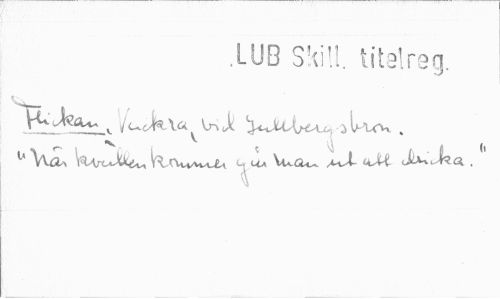 LUB Skill. titelreg.
Flickan, Vackra, vid Gullbergsbron.
"När kvällen kommer går man ut att dricka."